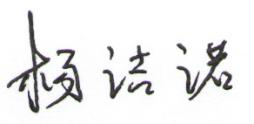 杨洁诺